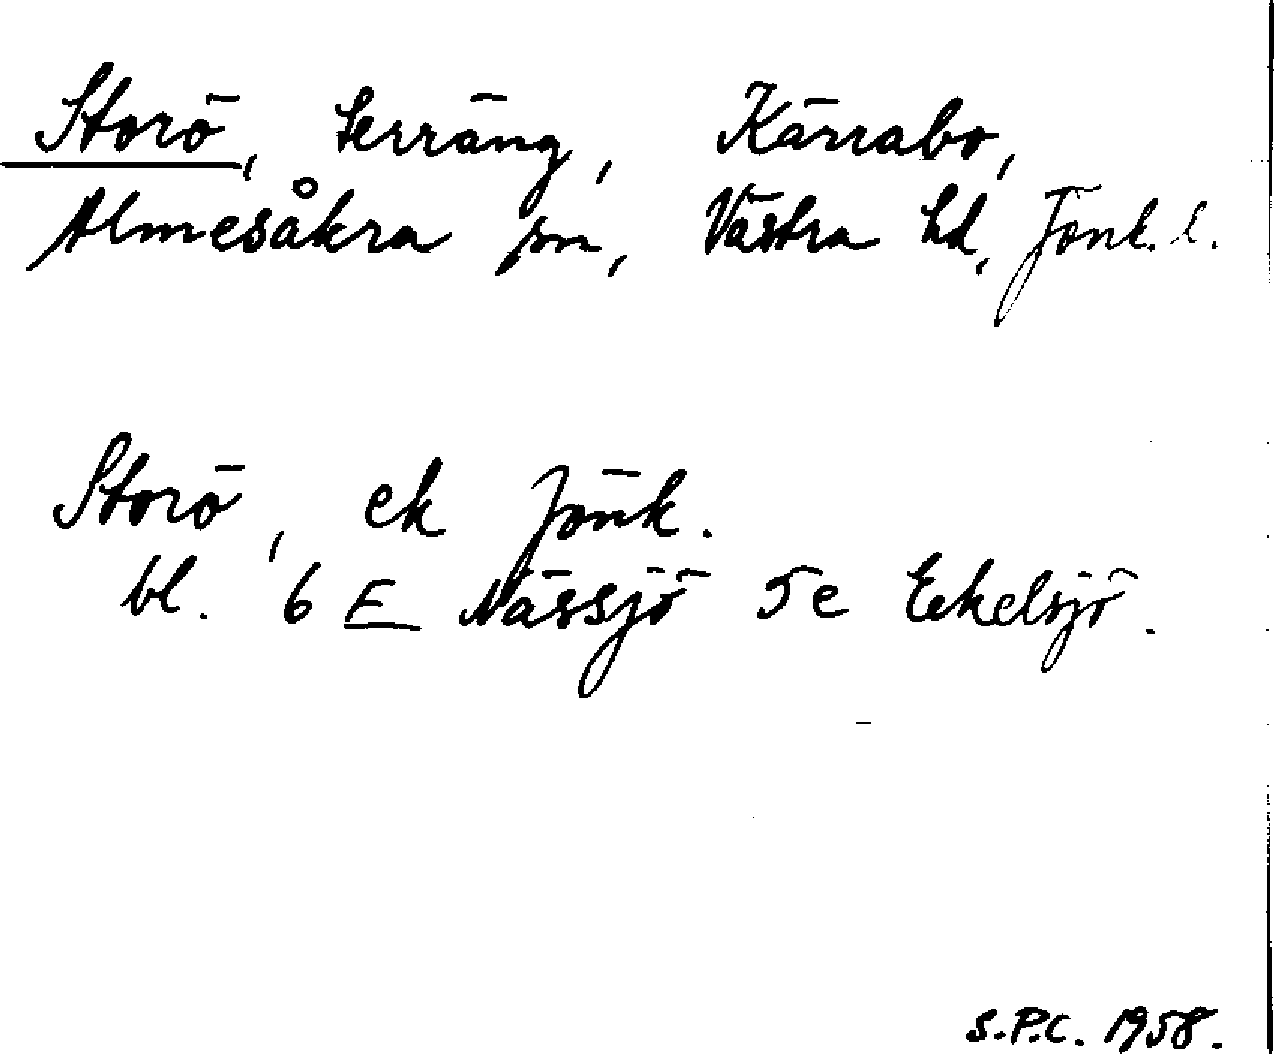 Storö, terräng, Kärrabo,
Almesåkra sn, Västra hd, Jönk. l.
Storö, ek Jönk.
bl. 6 E Nässjö 5e Eckelsjö.
S.P.C. 1958.